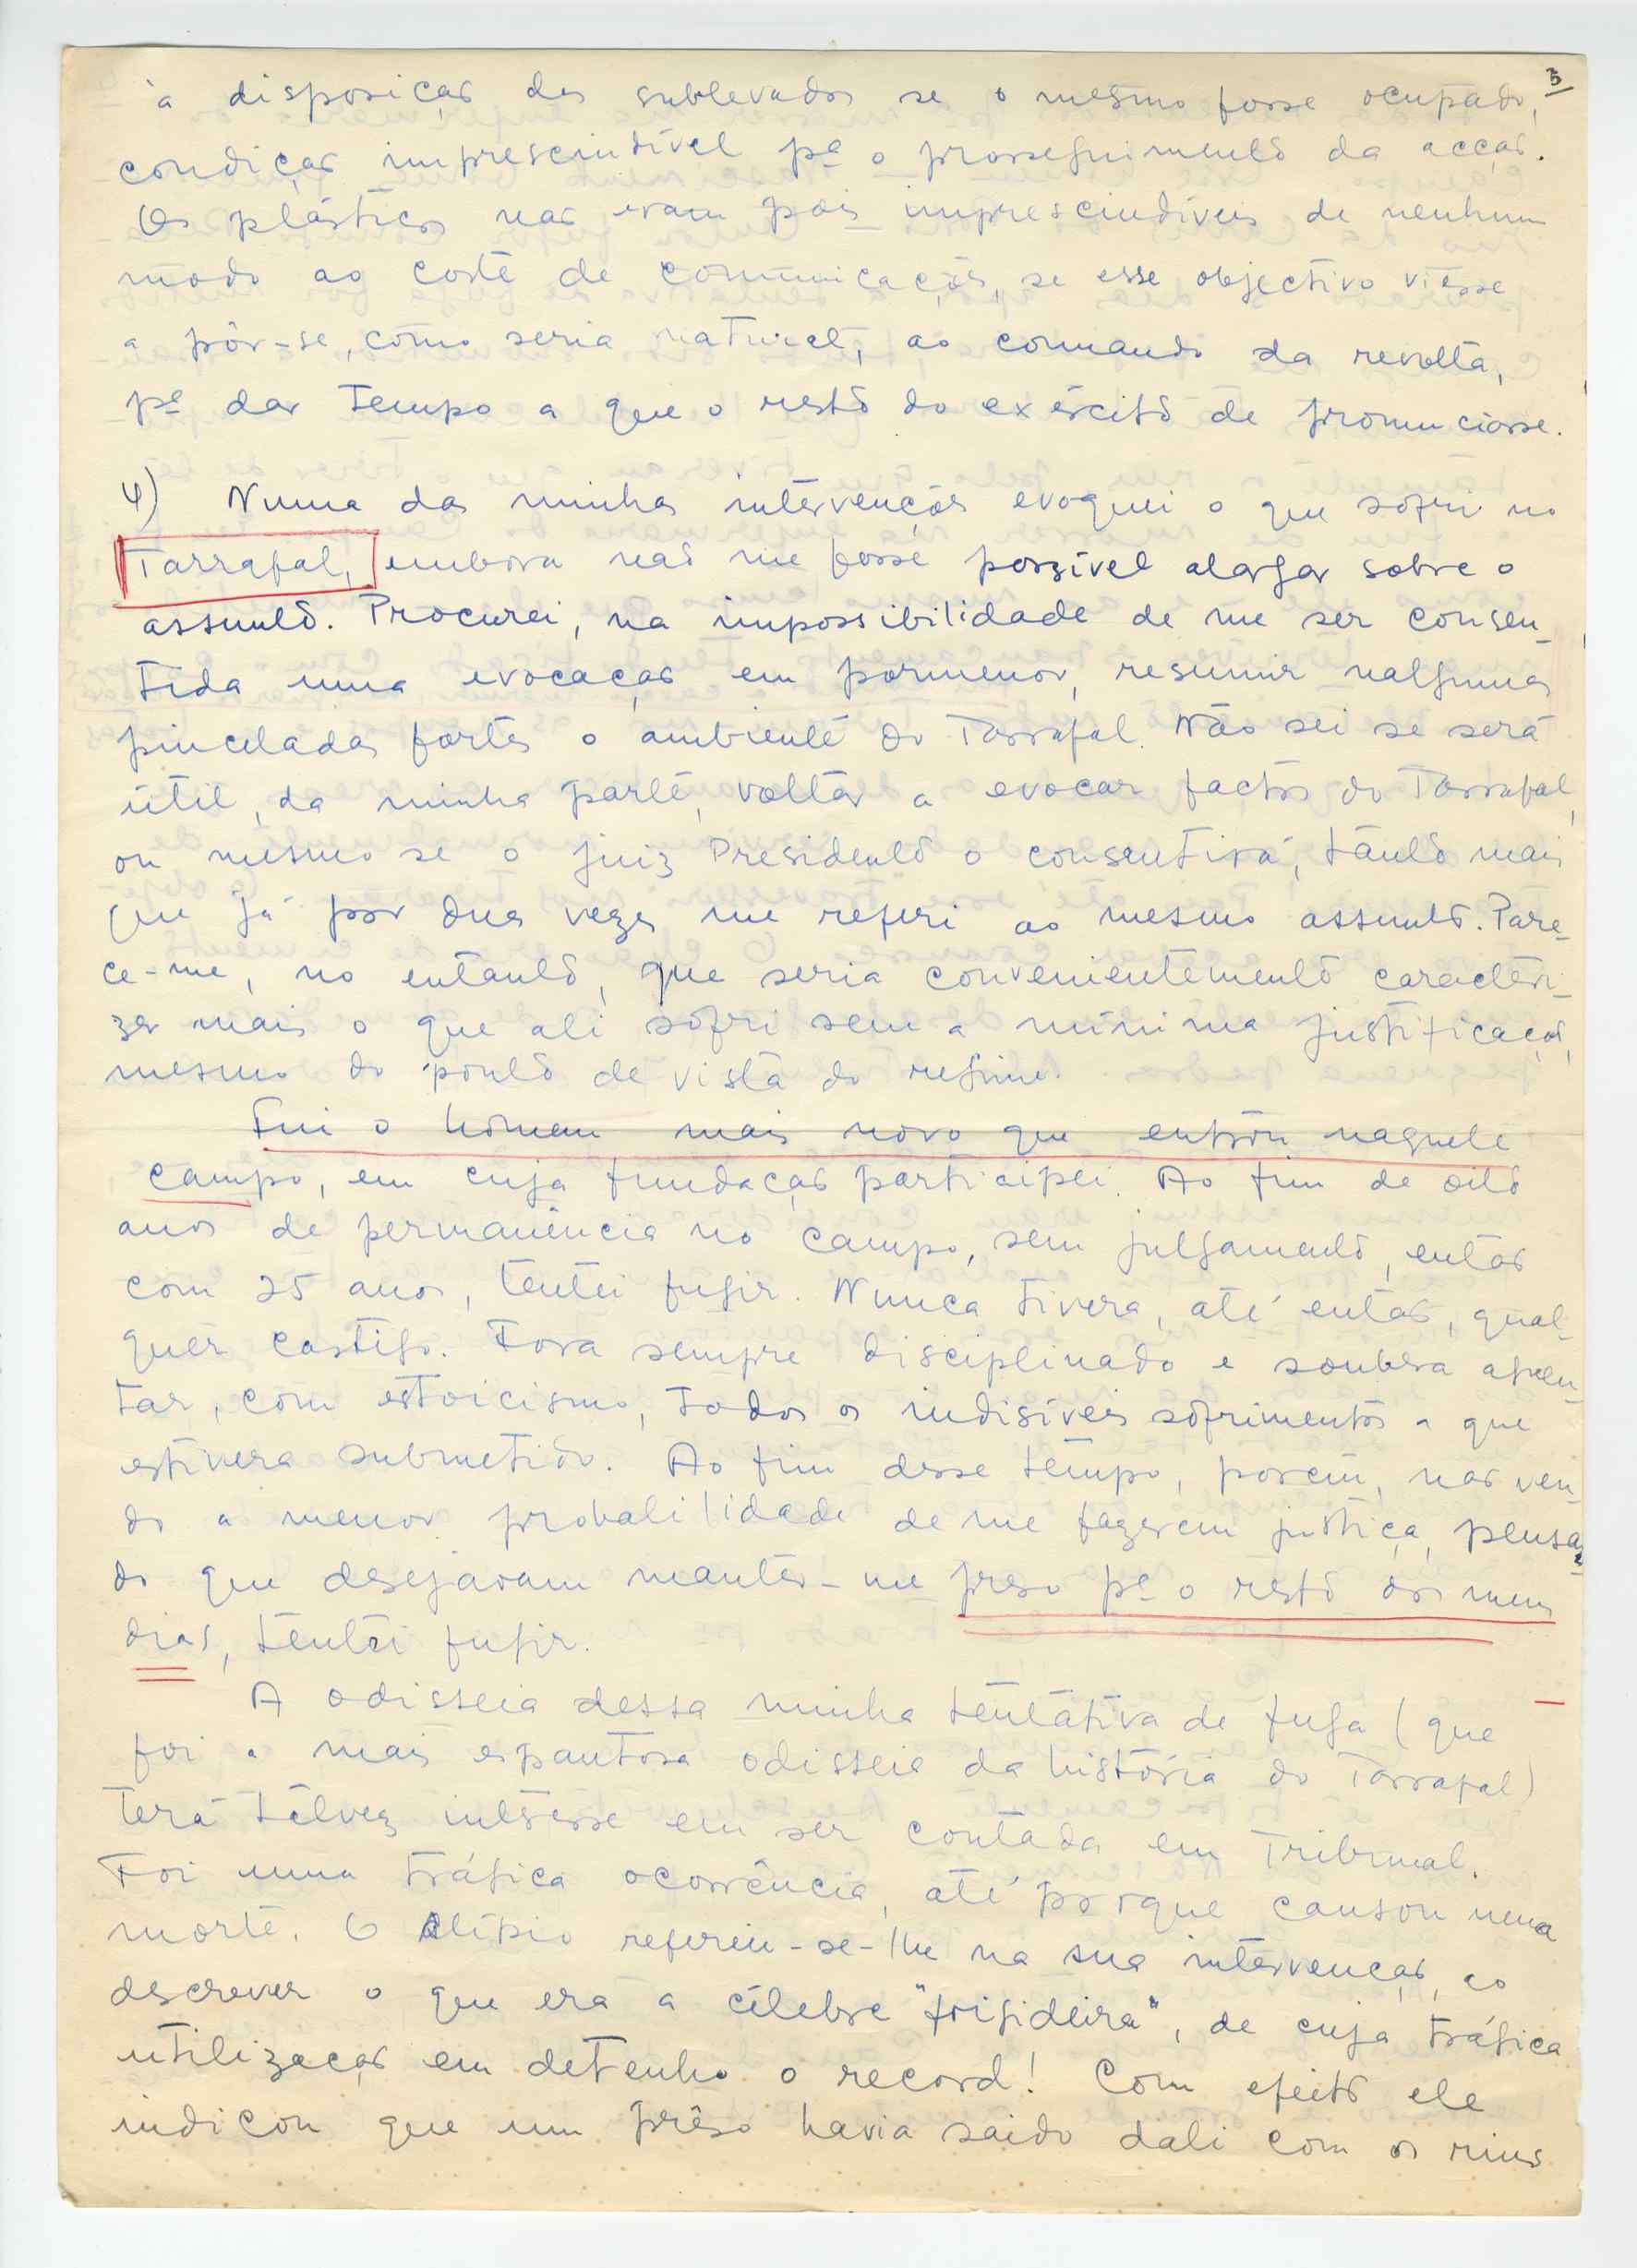 3
à disposição dos sublevados se o mesmo fosse ocupado,
condição imprescindível pª o prosseguimento da acção.
Os plásticos não eram pois imprescindíveis de nenhum
modo ao corte de comunicações, se esse objectivo viesse
a pôr-se, como seria natural, ao comando da revolta,
pª dar tempo a que o resto do exército de pronunciasse.
4) Numa das minhas intervenções evoquei o que sofri no
Tarrafal, embora não me fosse possível alargar sobre o
assunto. Procurei, na impossibilidade de me ser consen-
tida uma evocação em pormenor, resumir nalgumas
pinceladas fortes o ambiente do Tarrafal. Não sei se será
útil, da minha parte, voltar a evocar factos do Tarrafal,
ou mesmo se o juiz Presidente o consentirá, tanto mais
que já por duas vezes me referi ao mesmo assunto. Pare-
ce-me, no entanto, que seria convenientemente caracteri-
zar mais o que ali sofri sem a mínima justificação,
mesmo do ponto de vista do regime.
Fui o homem mais novo que entrou naquele
campo, em cuja fundação participei. Ao fim de oito
anos de permanência no campo, sem julgamento, então
com 25 anos, tentei fugir. Nunca tivera, até então, qual-
quer castigo. Fora sempre disciplinado e soubera aguen-
tar, com estoicismo, todos os indisíveis sofrimentos a que
estivera submetido. Ao fim desse tempo, porém, não ven-
do a menor probalilidade de me fazerem justiça, pensan-
do que desejavam manter-me preso pª o resto dos meus
dias, tentei fugir.
A odisseia dessa minha tentativa de fuga (que
foi a mais espantosa odisseia da história do Tarrafal)
terá talvez interesse em ser contada em Tribunal.
Foi uma trágica ocorrência, até porque causou uma
morte. O Alípio referiu-se-lhe na sua intervenção, ao
descrever o que era a célebre "frigideira", de cuja trágica
utilização eu detenho o record! Com efeito ele
indicou que um prêso havia saido dali com os rins